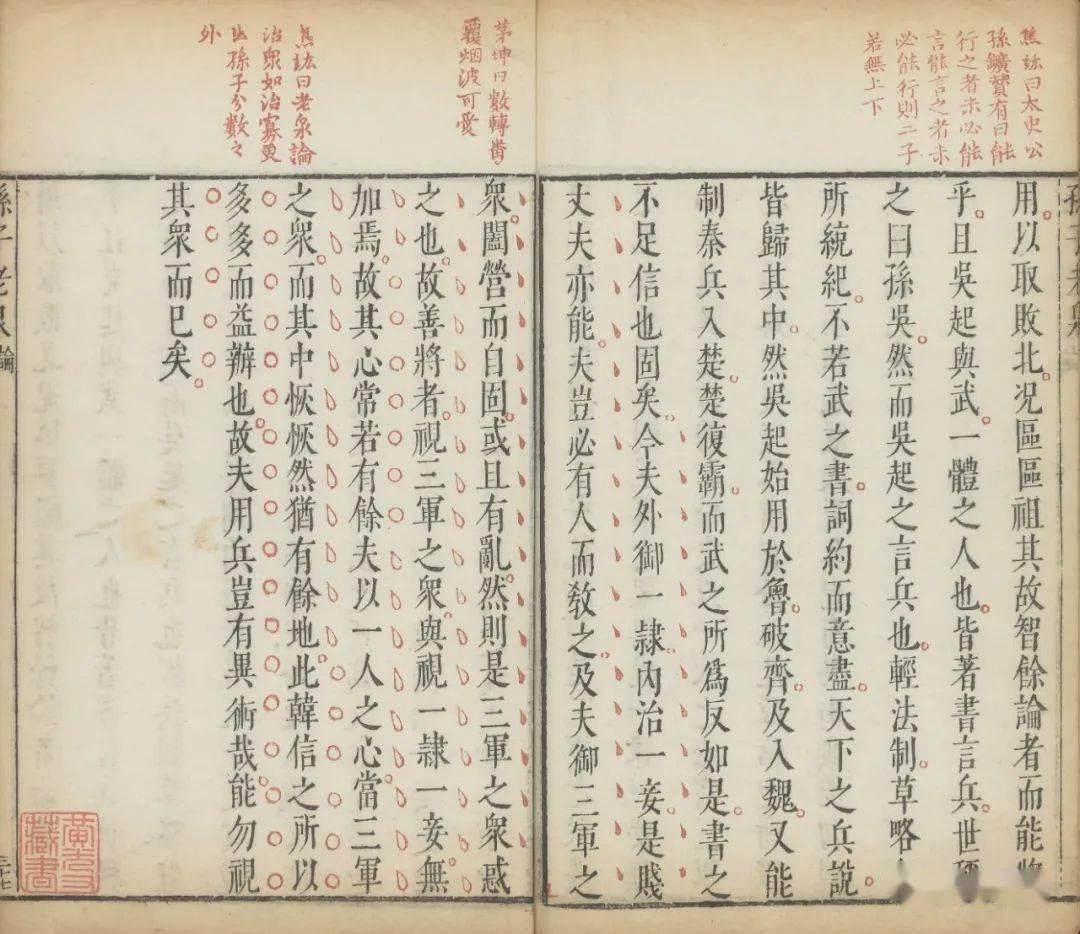 焦竑曰太史公
孫鑛賛有曰能
行之者未必能
言能言之者未
必能行則二子
若無上下
孫子老泉論
用以取敗北况區區祖其故智餘論者而能將
乎且吳起與武一體之人也皆著書言兵世稱
之曰孫吳然而吳起之言兵也輕法制草略
所統紀不若武之書詞約而意盡天下之兵說
皆歸其中然吳起始用於魯破齊及入魏又能
制秦兵入楚楚復霸而武之所爲反如是書之
不足信也固矣今夫外御一隸內治一妾是賤
丈夫亦能夫豈必有人而敎之及夫御三軍之
茅坤曰數轉
覆烟波可愛
焦竑曰老泉論
治衆如治寡更
出孫子分數之
外
衆闔營而自固或且有亂然則是三軍之衆惑
之也故善將者視三軍之衆與視一隸一妾無
加焉故其心常若有餘夫以一人之心當三軍
之衆而其中恢恢然猶有餘地此韓信之所以
多多而益辦也故夫用兵豈有異術哉能勿視
其衆而已矣
孫子老泉論
三十七
藏書